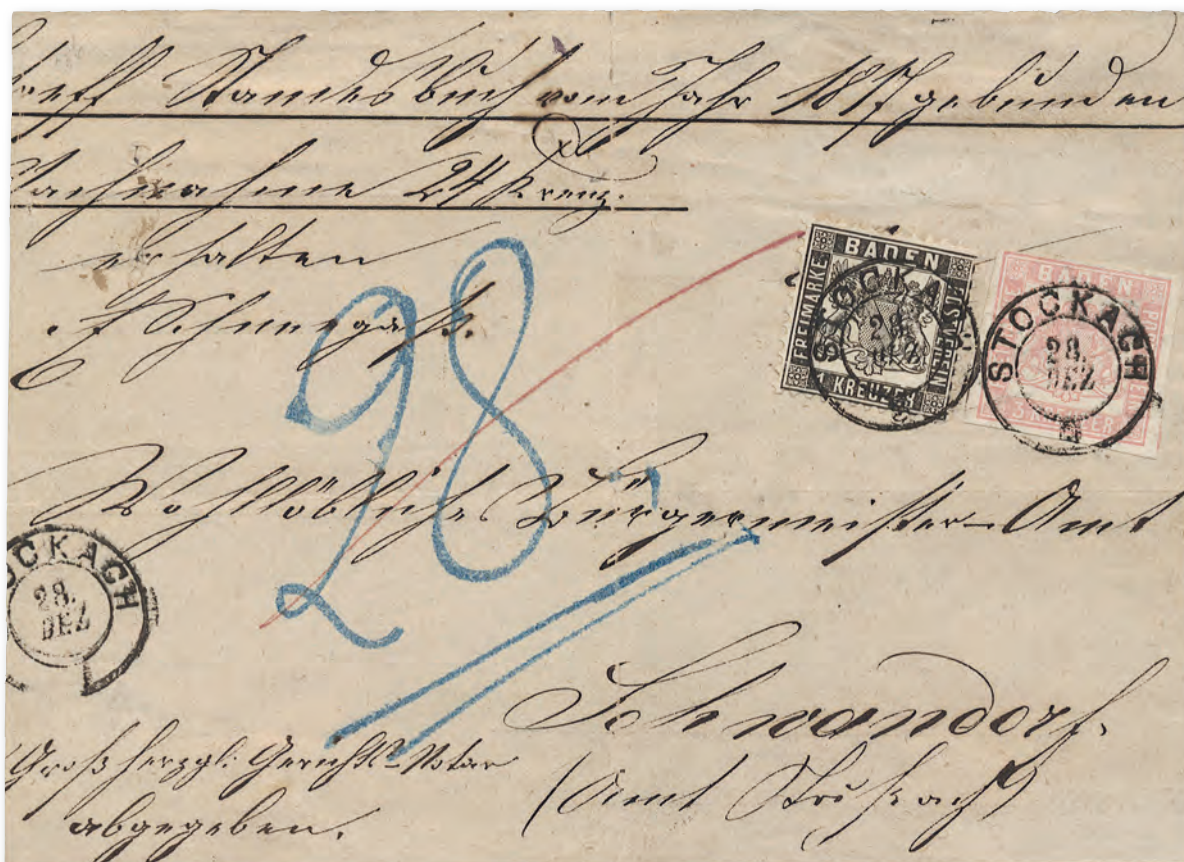 Standesbuch vom Jahr 1817 gebunden
Nachnahme 24 Kreuz.
erhalten
28
BADEN
FREIMARKE
POSTVEREIN
KREUZER
STOCKACH
28.
DEZ
BADEN
3 KREUZER
STOCKACH
28.
DEZ
Wohllöbliches Bürgermeister-Amt
STOCKACH
28.
DEZ
Schwandorf.
(Amt Stockach)
Großherzogl: Gerichts-Notar
abgegeben.